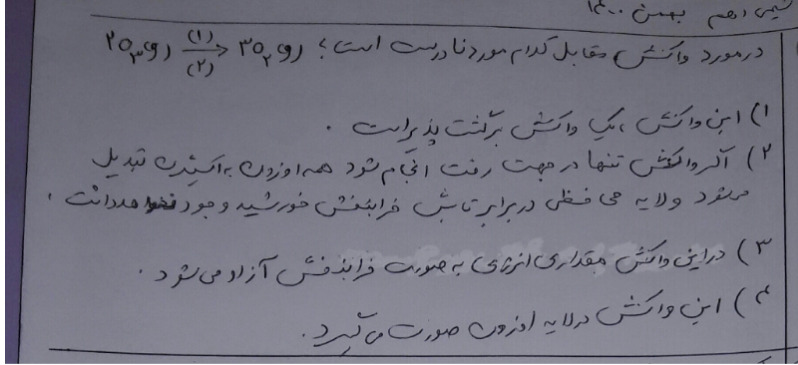 شیمی دهم بهمن ۱۴۰۰
در مورد واکنش مقابل کدام مورد نادرست است؟ ۲O₃(g) ⇌ ۳O₂(g) (۱) (۲)
۱) این واکنش، یک واکنش برگشت پذیر است.
۲) اگر واکنش تنها در جهت رفت انجام شود همه اوزون به اکسیژن تبدیل
می‌شود و لایه محافظی در برابر تابش فرابنفش خورشید وجود نخواهد داشت.
۳) در این واکنش مقداری انرژی به صورت فرابنفش آزاد می‌شود.
۴) این واکنش در لایه اوزون صورت می‌گیرد.